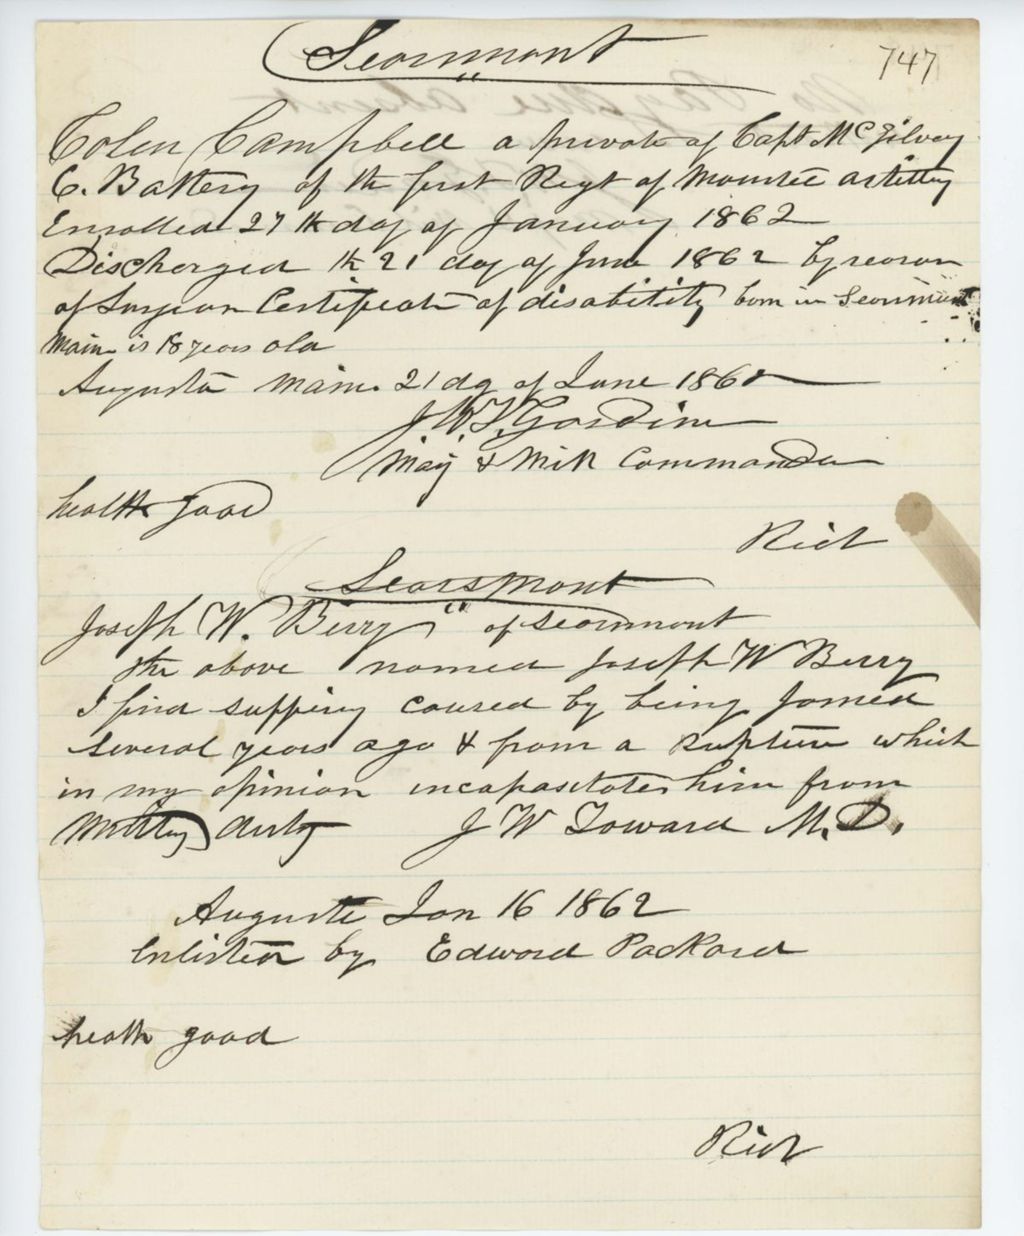 Searsmont
747
Colen Campbell a private of Capt McGilvey
C. Battery of the first Regt of Mounted artillery
Enrolled 27th day of January 1862
Discharged th 21 day of June 1862 by reason
of Surgeon Certificate of disability born in Searsmont
Maine is 18 years old
Augusta Maine 21 dy of June 1862
J. W. T. Gardine
Maj & Mill Commander
health good
Rich
Searsmont
Joseph W. Berry of Searsmont
the above named Joseph W Berry
I find suffering caused by being Jamed
several years ago & from a Rupture which
in my opinion incapasitates him from
Militry duty J W Toward M.D.
Augusta Jan 16 1862
Enlisted by Edward Packard
heath good
Rich